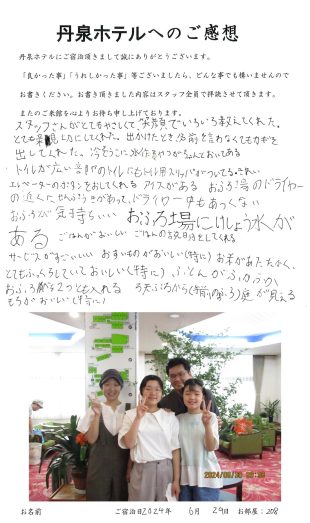 丹泉ホテルへのご感想
丹泉ホテルにご宿泊頂きまして誠にありがとうございます。
「良かった事」「うれしかった事」等ございましたら、どんな事でも構いませんので
お書きください。お書き頂きました内容はスタッフ全員で拝読させて頂きます。
またのご来館を心よりお待ち申し上げております。
スタッフさんがとてもやさしくて笑顔でいろいろ教えてくれた。
とても親切にしてくれた。出かけたとき名前を言わなくてもカギを
出してくれた。
トイレが広い
エレベーターのボタンをおしてくれる アイスがある おふろ場のドライヤー
の近くにせんぷうきがあって、ドライヤー中もあつくない
おふろが気持ちいい おふろ場にれいしょう水が
ある ごはんがおいしい ごはんの説明をしてくれる
サービスがすごいいい おすいものがおいしい(特に) お茶があたたかく、
とてもふっくらしていておいしい(特に) ふとんがふかふか
おふろ 2つとも入れる 庭が見える
もちがおいしい(特に)
2024
お名前 ご宿泊日2024年 6月 29日 お部屋:208